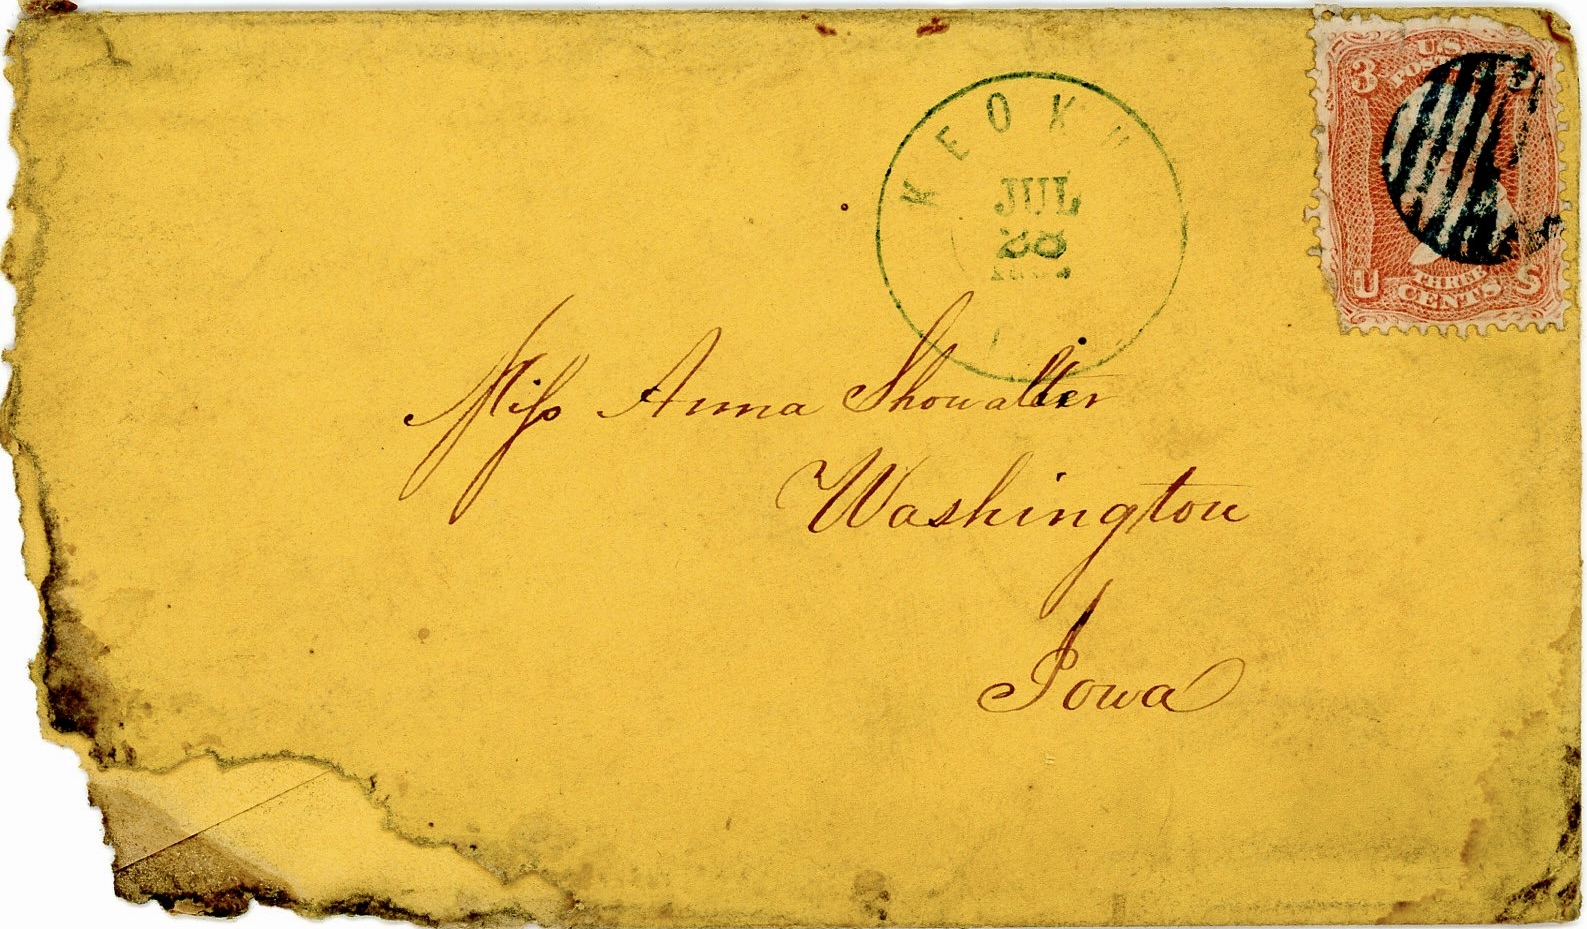 KEOKU
JUL
28
U.S.
POST
3
3
U S
THREE
CENTS
Miss Anna Showalter
Washington
Iowa